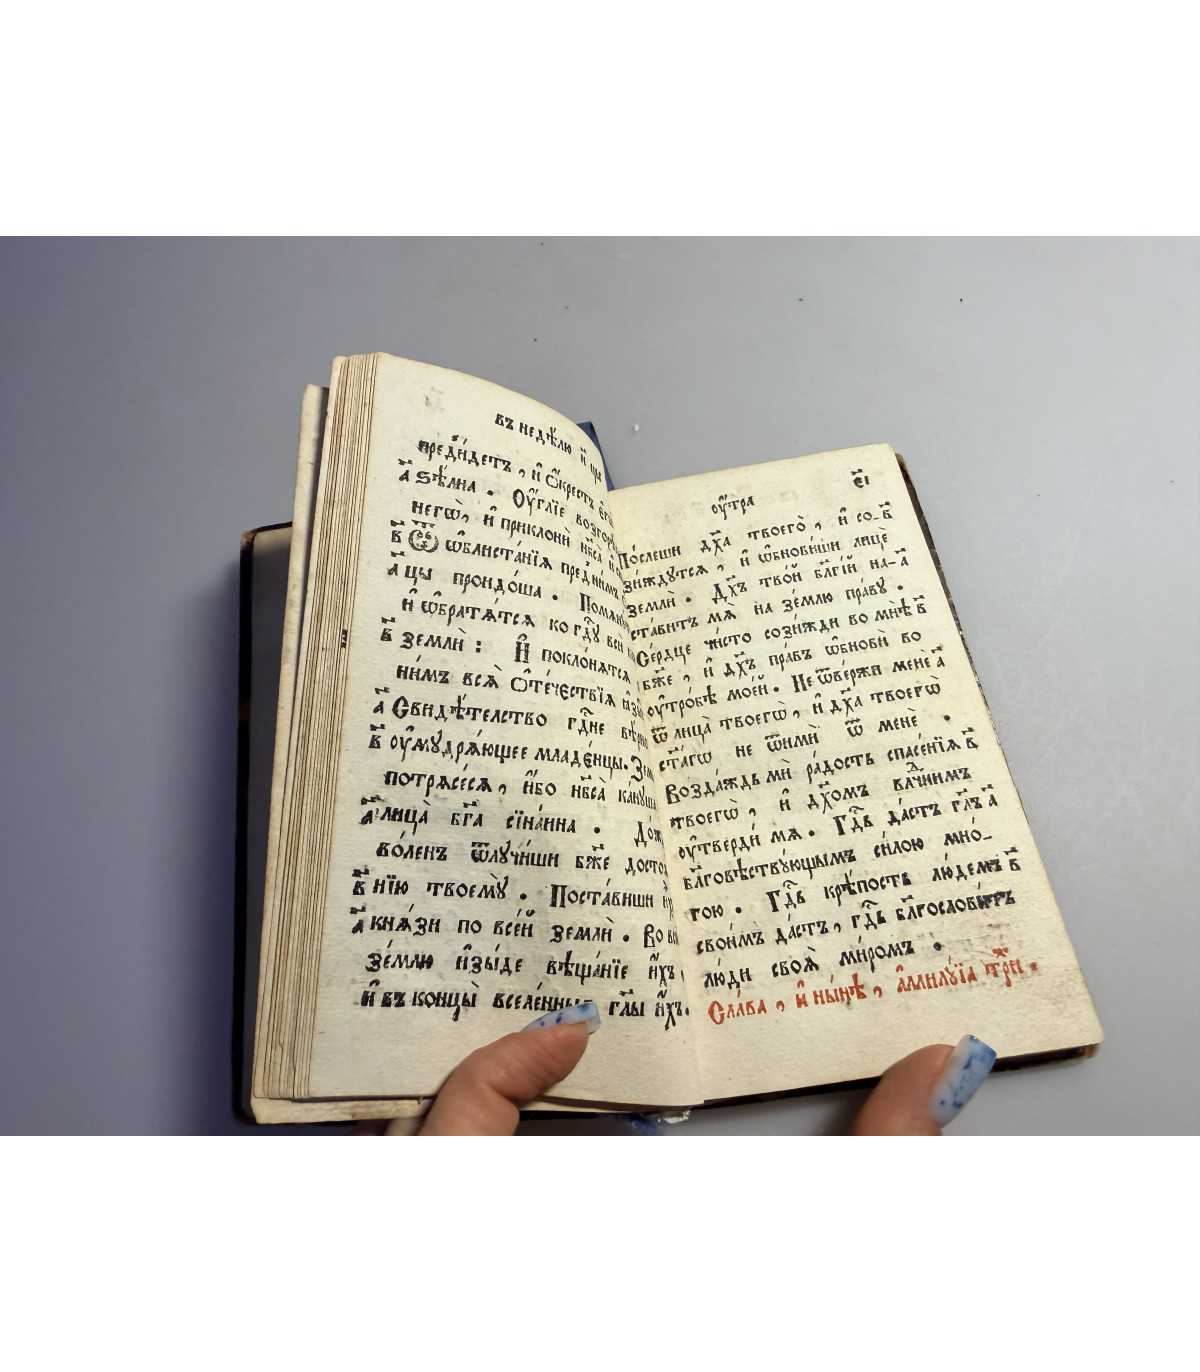 въ недѣ́лю н҃ цы
пред̾и́детъ, и҆ ѻ҆́крестъ є҆гѡ̀
а҃ ѕѣ́лна. Оу҆́глїе возгорѣ́
негѡ̀, и҆ приклонѝ нб҃са̀ и҆
в҃ Ѿ ѡ҆блиста́нїѧ пред̾ ни́мъ
а҃ цы проидо́ша. Помѧн
и҆ ѡ҆братѧ́тсѧ ко гд҇ꙋ всѝ
в҃ землѝ: И҆ поклонѧ́тсѧ
ни́мъ всѧ̀ ѻ҆те́чествїѧ
а҃ Свидѣ́телство гд҇не вѣ́рно
в҃ оу҆мꙋдрѧ́ющее младе́нцы. Зем
потрѧсе́сѧ, и҆́бо нб҃са̀ ка́нꙋша
а҃ лица̀ бг҃а сїна́ина. До́ж
во́ленъ ѿлꙋчи́ши бж҃е досто
в҃ нїю твоемꙋ̀. Поста́виши
а҃ кнѧ́зи по все́й землѝ. Во
зе́млю и҆зы́де вѣща́нїе и҆́хъ,
и҆ въ концы̀ вселе́нныѧ гл҃ы и҆́хъ.
оу҆́тра
є҃і
По́слеши дх҃а твоего̀, и҆ со- в҃
зи́ждꙋтсѧ, и҆ ѡ҆бнови́ши лицѐ
землѝ. Дх҃ъ тво́й бл҃гі́й на- а҃
ста́витъ мѧ̀ на зе́млю пра́вꙋ.
Се́рдце чи́сто сози́жди во мнѣ̀ в҃
бж҃е, и҆ дх҃ъ пра́въ ѡ҆бновѝ во
оу҆тро́бѣ мое́й. Не ѿве́ржи менѐ а҃
ѿ лица̀ твоегѡ̀, и҆ дх҃а твоегѡ̀
ст҃а́гѡ не ѿимѝ ѿ менѐ.
Возда́ждь мѝ ра́дость спасе́нїѧ в҃
твоегѡ̀, и҆ дх҃омъ влⷣчнимъ
оу҆твердѝ мѧ. Гд҇ь да́стъ гл҃ъ а҃
бл҃говѣствꙋ́ющымъ си́лою мно́-
гою. Гд҇ь крѣ́пость лю́демъ в҃
свои́мъ да́стъ, гд҇ь бл҃гослови́тъ
лю́ди своѧ̀ ми́ромъ.
Сла́ва, и҆ ны́нѣ, а҆ллилꙋ́їа три.